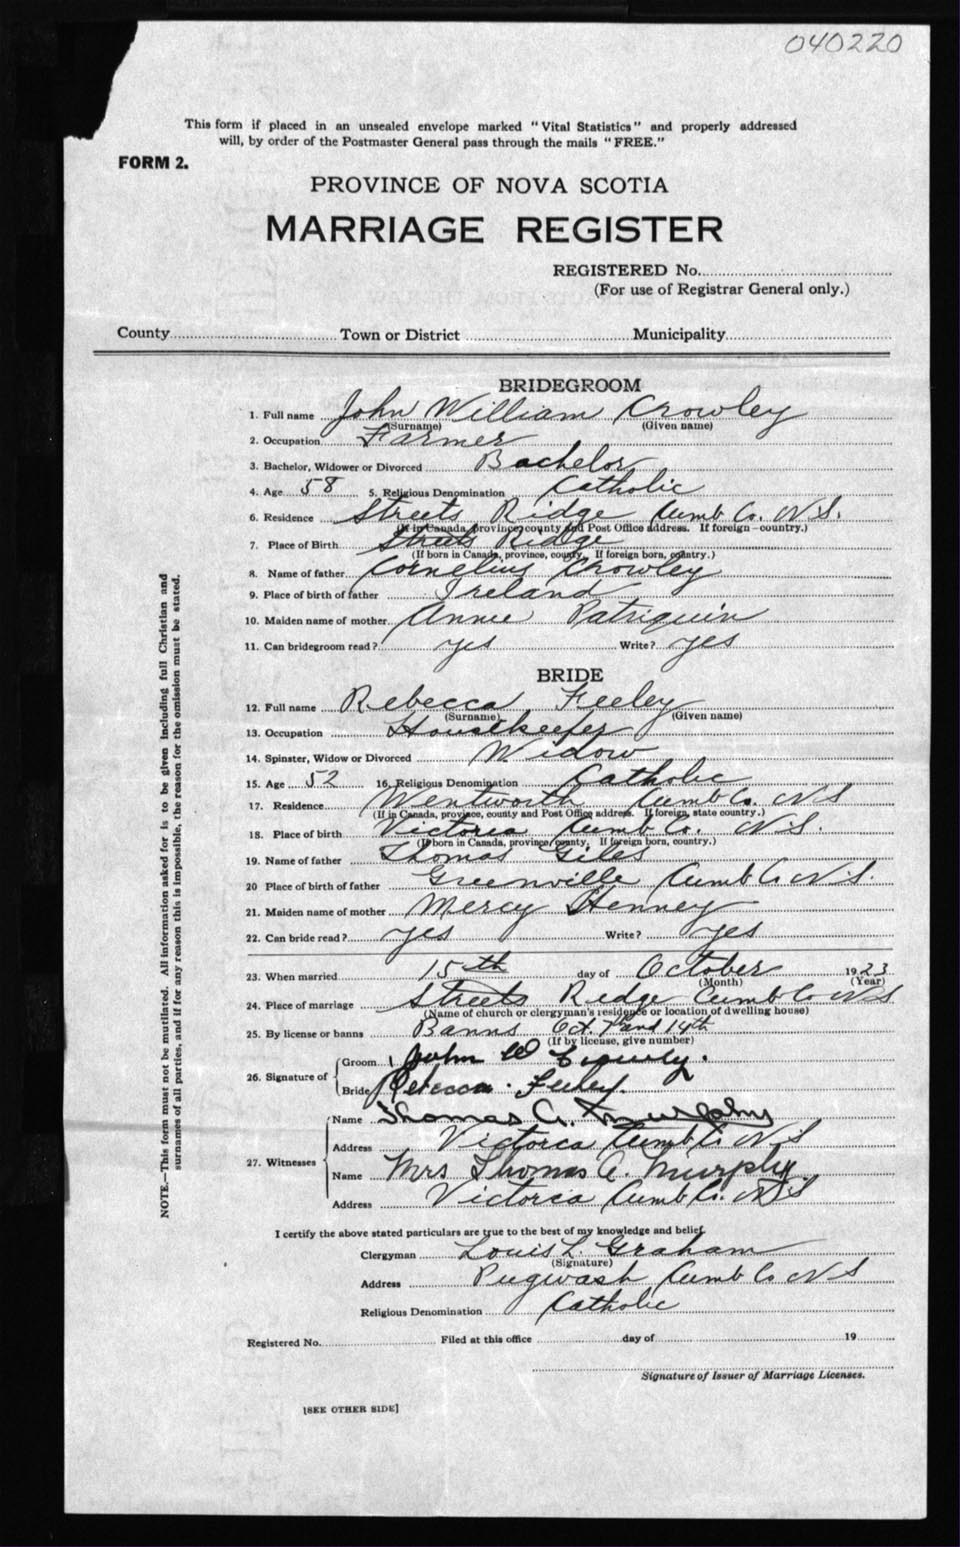 040220
This form if placed in an unsealed envelope marked "Vital Statistics" and properly addressed
will, by order of the Postmaster General pass through the mails "FREE."
FORM 2.
PROVINCE OF NOVA SCOTIA
MARRIAGE REGISTER
REGISTERED No.
(For use of Registrar General only.)
County Town or District Municipality
BRIDEGROOM
1. Full name John William Crowley
(Surname) (Given name)
2. Occupation Farmer
3. Bachelor, Widower or Divorced Bachelor
4. Age 58 5. Religious Denomination Catholic
6. Residence Streets Ridge Cumb Co. N.S.
(If in Canada, province, county and Post Office address. If foreign—country.)
7. Place of Birth Streets Ridge
(If born in Canada, province, county, If foreign born, country.)
8. Name of father Cornelius Crowley
9. Place of birth of father Ireland
10. Maiden name of mother Annie Patriquin
11. Can bridegroom read? yes Write? yes
BRIDE
12. Full name Rebecca Feeley
(Surname) (Given name)
13. Occupation Housekeeper
14. Spinster, Widow or Divorced Widow
15. Age 52 16. Religious Denomination Catholic
17. Residence Wentworth Cumb Co. N S
(If in Canada, province, county and Post Office address. If foreign, state country.)
18. Place of birth Victoria Cumb Co. N.S.
(If born in Canada, province, county, If foreign born, country.)
19. Name of father Thomas Giles
20 Place of birth of father Greenville Cumb Co N.S.
21. Maiden name of mother Mercy Henney
22. Can bride read? yes Write? yes
23. When married 15th day of October 1923
(Month) (Year)
24. Place of marriage Streets Ridge Cumb Co N S
(Name of church or clergyman's residence or location of dwelling house)
25. By license or banns Banns Oct. 7th and 14th
(If by license, give number)
26. Signature of
Groom John W Crowly.
Bride Rebecca Feeley.
27. Witnesses
Name Thomas A. Murphy
Address Victoria Cumb Co N S
Name Mrs Thomas A. Murphy
Address Victoria Cumb Co. N S
I certify the above stated particulars are true to the best of my knowledge and belief.
Clergyman Louis L. Graham
(Signature)
Address Pugwash Cumb Co N S
Religious Denomination Catholic
Registered No. Filed at this office day of 19
Signature of Issuer of Marriage Licenses.
[SEE OTHER SIDE]
NOTE.—This form must not be mutilated. All information asked for is to be given including full Christian and
surnames of all parties, and if for any reason this is impossible, the reason for the omission must be stated.